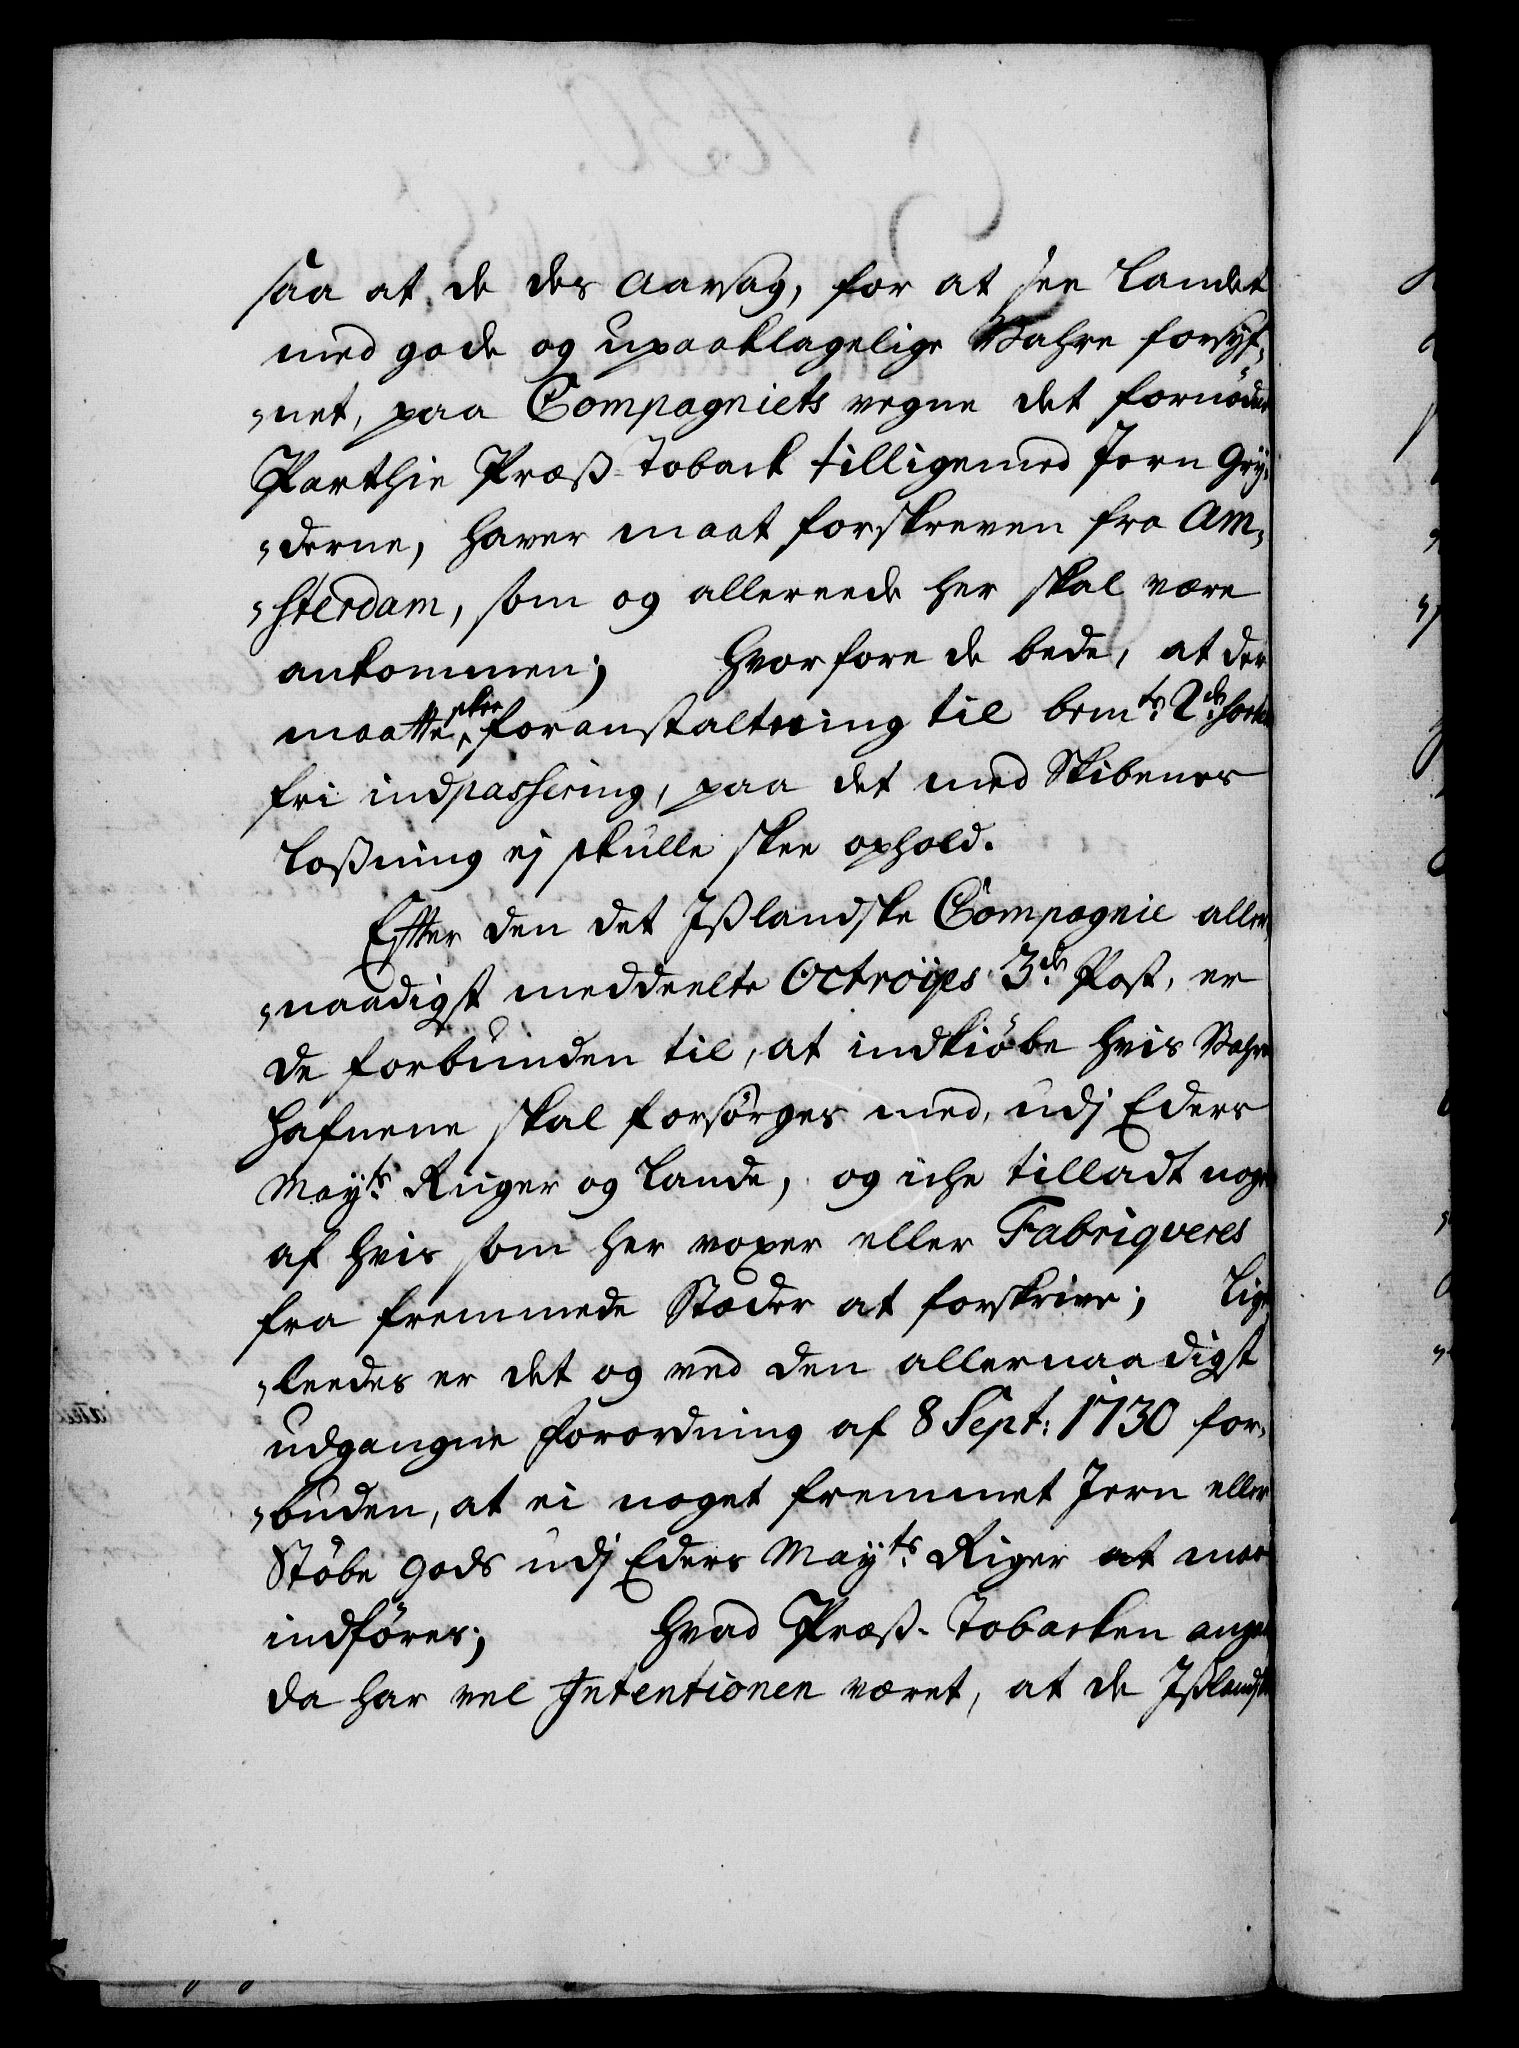 saa at de des aarsag, for at see Landet
med gode og upaaklagelige Wahre forsyf-
-net, paa Compagniets vegne det fornødne
Parthie Præss-Toback tilligemed Jern Gry-
-derne, haver maat forskreven fra Am-
-sterdam, som og allereede her skal være
ankommen; hvorfore de bede, at der
maatte skee foranstaltning til bemte 2de
fri indpassering, paa det med Skibenes
Lossning ej skulle skee ophold.
Efter den det Isslandske Compagnie aller-
-naadigst meddeelte Octroijes 3de Post, er
de forbunden til, at indkiøbe hvis Wahre
hafnene skal forsørges med, udj Eders
Mayts Riiger og Lande, og iche tilladt noget
af hvis som her voxer eller Fabriqveres
fra fremmede Stæder at forskrive; Lige-
-leedes er det og ved den allernaadigst
udgangne Forordning af 8 Sept: 1730 for-
-buden, at ei noget fremmet Jern eller
Støbe gods udj Eders Mayts Riger at maa
indføres; hvad Præss-Tobacken angaar
da har vel Intentionen været, at de Isslandske